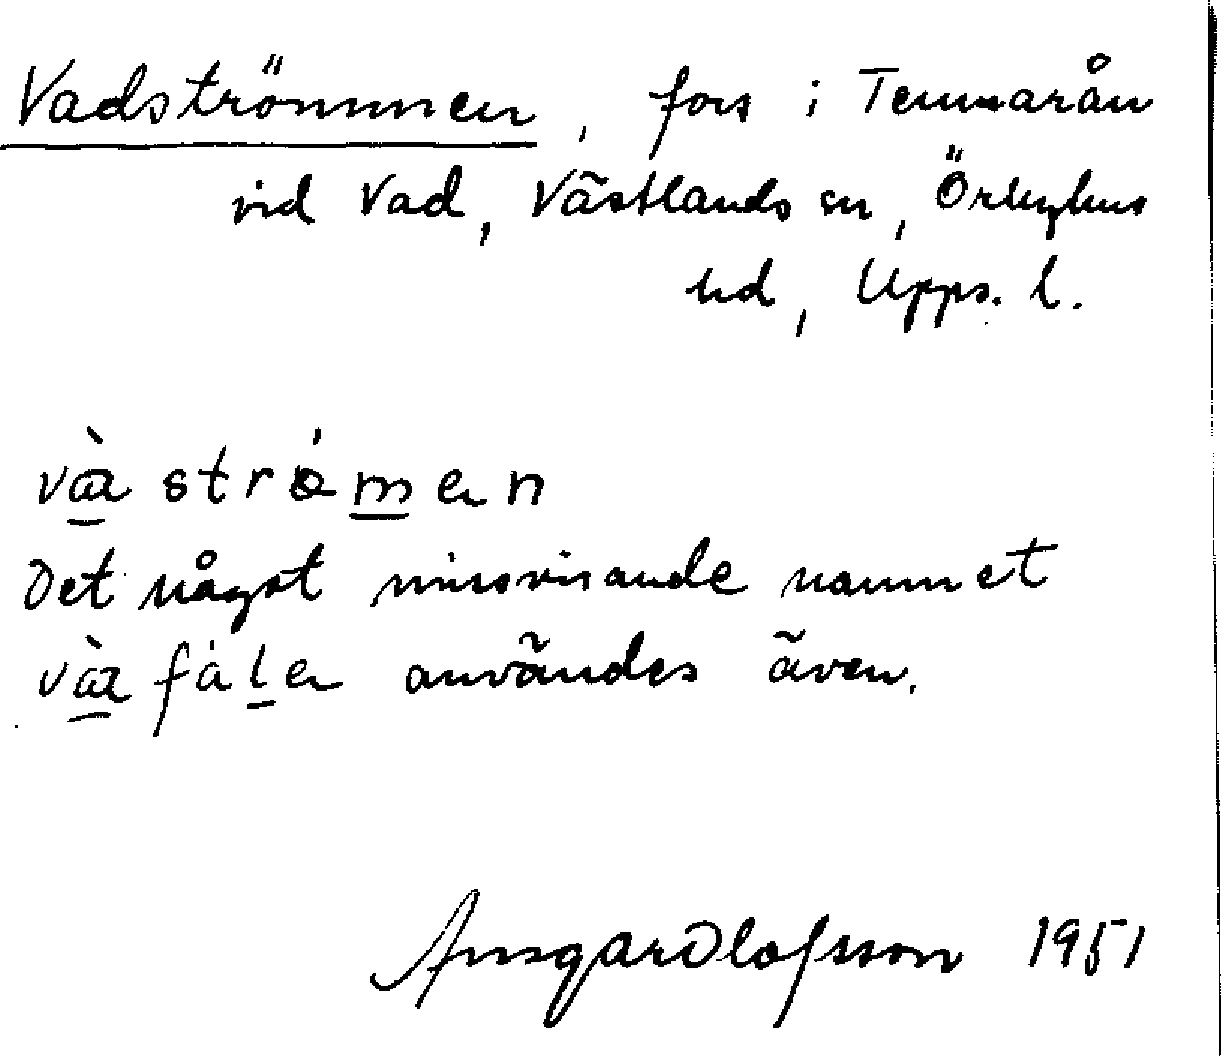 Vadströmmen, fors i Temnarån
vid Vad, Västlands sn, Örbyhus
hd, Upps. l.
và̱ɑ strǿm̱en
Det något missvisande namnet
và̱ɑ fáḻen användes även.
Ansgar Olofsson 1951